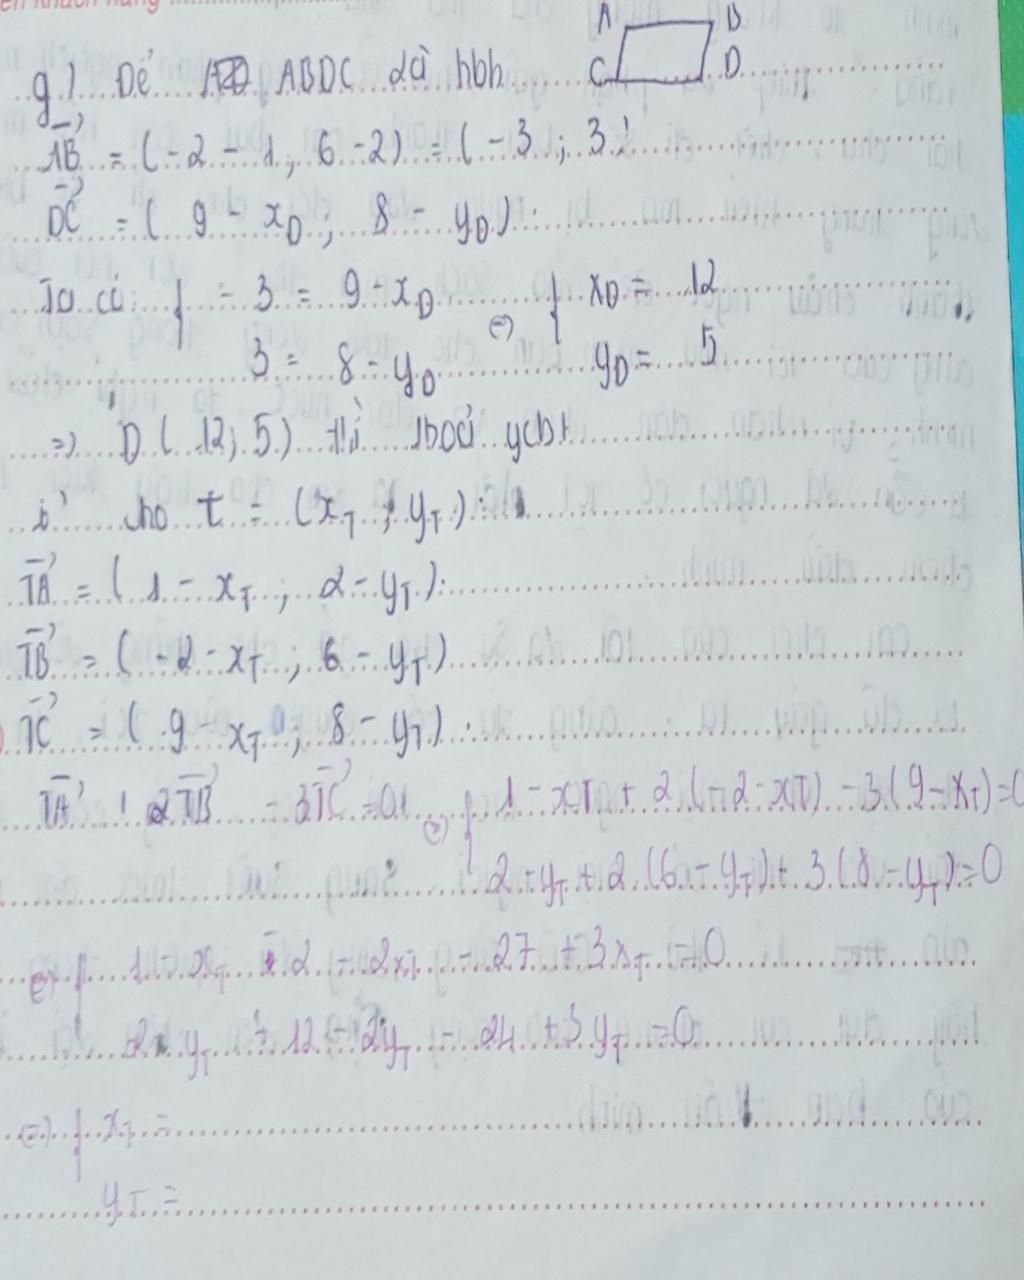 A B
g) Để ABDC là hbh C D
AB⃗ = (-2 - 1 ; 6 - 2) = (-3 ; 3)
DC⃗ = ( 9 - x_D ; 8 - y_D )
Ta có { - 3 = 9 - x_D (=) { x_D = 12
3 = 8 - y_D y_D = 5
=> D ( 12 ; 5 ) thì thoả ycbt
cho t = (x_T ; y_T)
TA⃗ = ( 1 - x_T ; 2 - y_T )
TB⃗ = ( -2 - x_T ; 6 - y_T )
TC⃗ = ( 9 - x_T ; 8 - y_T )
TA⃗ 2TB⃗ - 3TC⃗ = 0 (=) { 1 - xT + 2 (-2 - xT) - 3 (9 - x_T) = 0
2 - y_T + 2 (6 - y_T) + 3 (8 - y_T) = 0
{ 1 - x_T 2 - 2x_T - 27 + 3x_T = 0
2 - y_T + 12 - 2y_T - 24 + 3y_T = 0
(=) { x_T =
y_T =